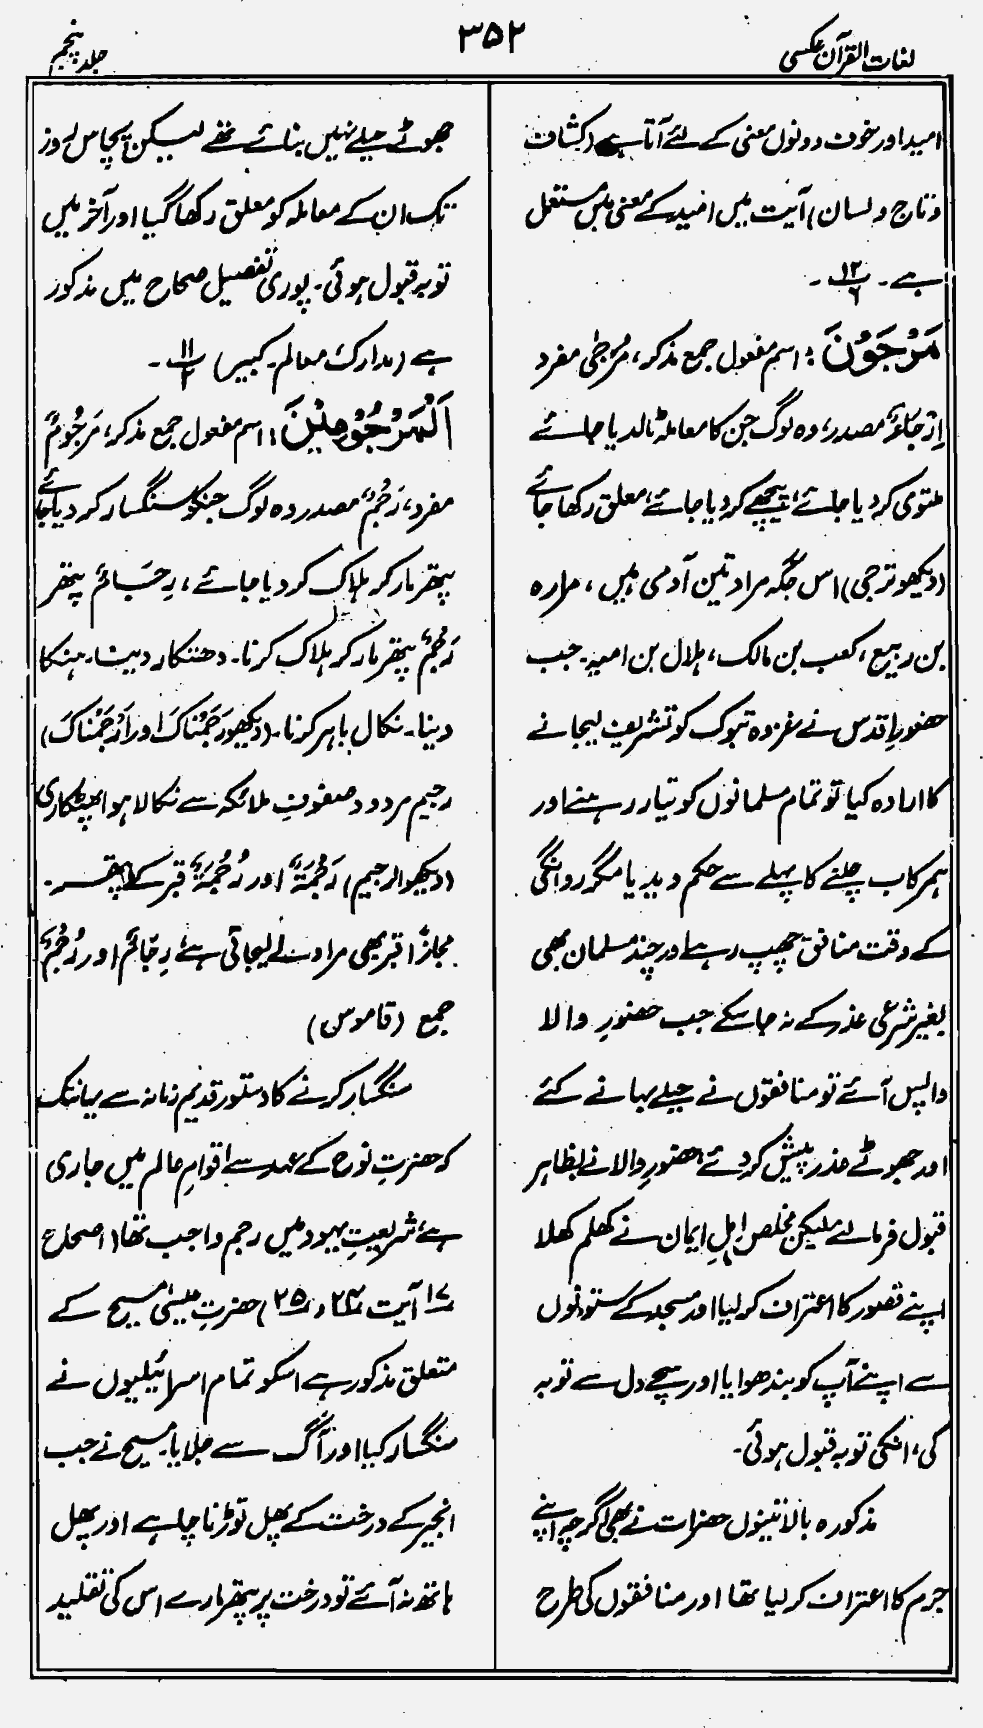 لغات القرآن عکسی
۳۵۲
جلد پنجم
امید اور خوف دونوں معنی کے لئے آتا ہے (کشاف
و تاج و لسان) آیت میں امید کے معنی میں مستعمل
ہے۔ ۱۲/۶ ۔
مَرْجَوْنَ : اسم مفعول جمع مذکر، مُرْجیٰ مفرد
اِرْجَاءٌ مصدر، وہ لوگ جن کا معاملہ ٹالدیا جائے
ملتوی کر دیا جائے، پیچھے کر دیا جائے، معلق رکھا جائے
(دیکھو ترجی) اس جگہ مراد تین آدمی ہیں، مرارہ
بن ربیع، کعب بن مالک، ہلال بن امیہ۔ جب
حضورِ اقدس نے غزوہ تبوک کو تشریف لیجانے
کا ارادہ کیا تو تمام مسلمانوں کو تیار رہنے اور
ہمرکاب چلنے کا پہلے سے حکم دیدیا مگر روانگی
کے وقت منافق چھپ رہے اور چند مسلمان بھی
بغیر شرعی عذر کے نہ جا سکے جب حضورِ والا
واپس آئے تو منافقوں نے حیلے بہانے کئے
اور جھوٹے عذر پیش کر دئے حضورِ والا نے بظاہر
قبول فرمالئے لیکن مخلص اہلِ ایمان نے کھلم کھلا
اپنے قصور کا اعتراف کر لیا اور مسجد کے ستونوں
سے اپنے آپ کو بندھوایا اور سچے دل سے توبہ
کی، انکی توبہ قبول ہوئی۔
مذکورہ بالا تینوں حضرات نے بھی اگرچہ اپنے
جرم کا اعتراف کر لیا تھا اور منافقوں کی طرح
جھوٹے حیلے نہیں بنائے تھے لیکن پچاس روز
تک ان کے معاملہ کو معلق رکھا گیا اور آخر میں
توبہ قبول ہوئی۔ پوری تفصیل صحاح میں مذکور
ہے (مدارک، معالم۔ کبیر) ۱۱/۲ ۔
اَلْمَرْجُوْمِیْنَ : اسم مفعول جمع مذکر، مَرْجُوْمٌ
مفرد، رَجْمٌ مصدر وہ لوگ جنکو سنگسار کر دیا جائے
پتھر مار کر ہلاک کر دیا جائے، رِجَامٌ پتھر
رَجْمٌ پتھر مار کر ہلاک کرنا۔ دھتکار دینا۔ ہنکا
دینا۔ نکال باہر کرنا۔ (دیکھو رَجَمْنَاکَ اور اَرْجَمْنَاکَ)
رجیم مردود صفوفِ ملائکہ سے نکالا ہوا پھٹکاری
(دیکھو الرجیم) رَجْمَةٌ اور رُجْمَةٌ قبر کے پتھر۔
مجازًا قبر بھی مراد لے لیجاتی ہے رِجَامٌ اور رُجَمٌ
جمع (قاموس)
سنگسار کرنے کا دستور قدیم زمانہ سے یہانتک
کہ حضرتِ نوح کے عہد سے اقوامِ عالم میں جاری
ہے، شریعتِ یہود میں رجم واجب تھا (اصحاح
۱۷ آیت ۲۴ و ۲۵) حضرتِ عیسیٰ مسیح کے
متعلق مذکور ہے اسکو تمام اسرائیلیوں نے
سنگسار کیا اور آگ سے جلایا۔ مسیح نے جب
انجیر کے درخت کے پھل توڑنا چاہے اور پھل
ہاتھ نہ آئے تو درخت پر پتھر مارے اس کی تقلید